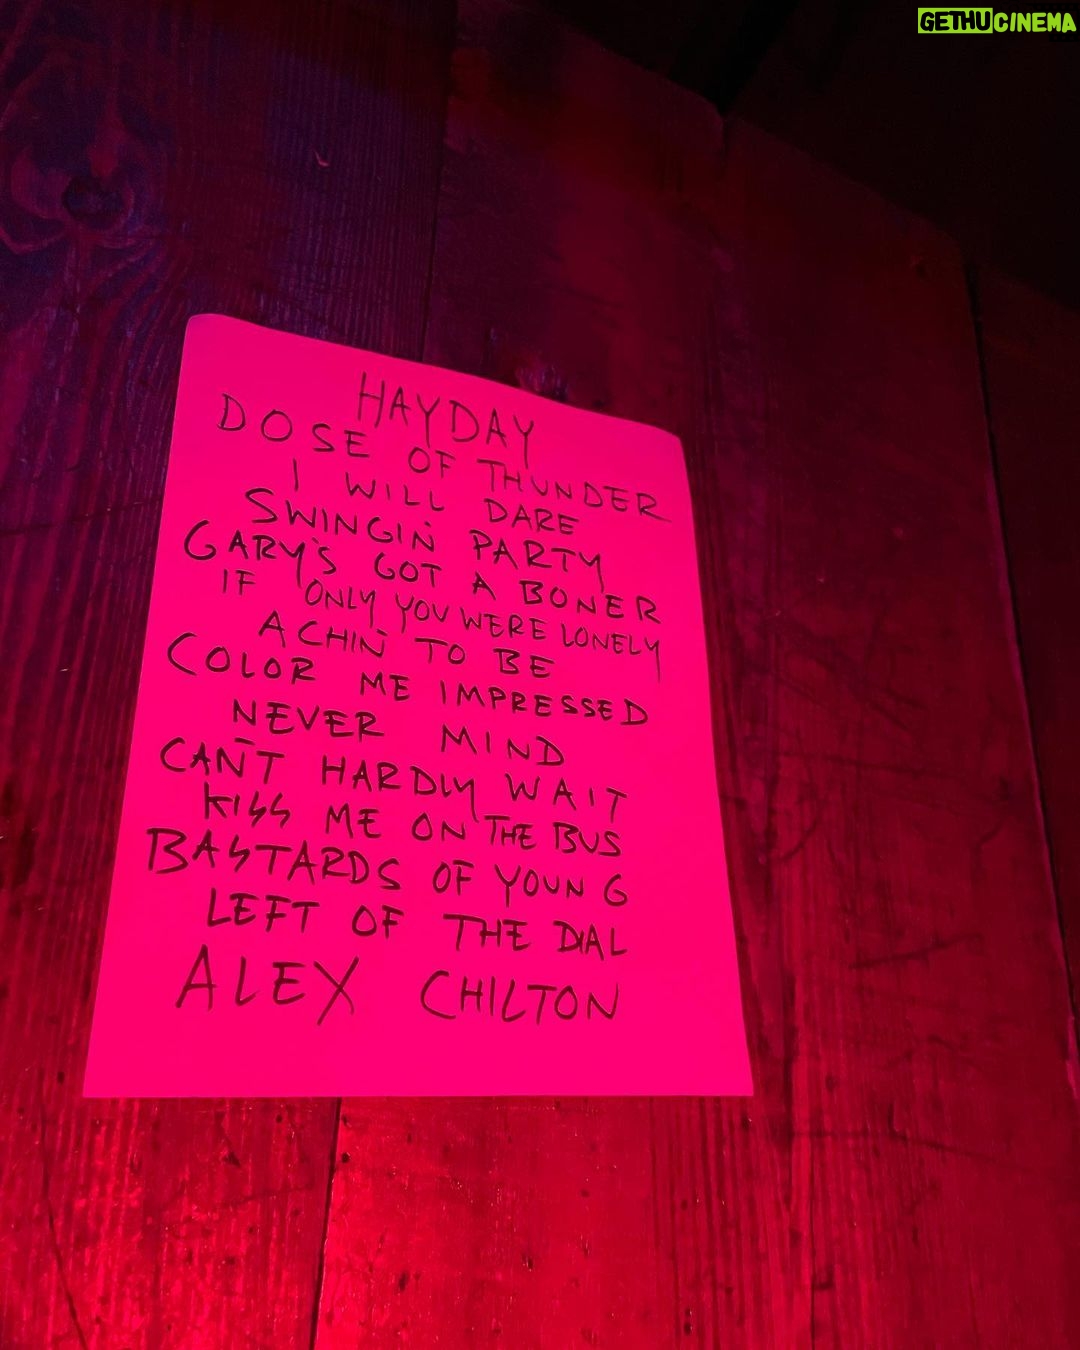 GETHUCINEMA
HAYDAY
DOSE OF THUNDER
I WILL DARE
SWINGIN' PARTY
GARY'S GOT A BONER
IF ONLY YOU WERE LONELY
ACHIN' TO BE
COLOR ME IMPRESSED
NEVER MIND
CAN'T HARDLY WAIT
KISS ME ON THE BUS
BASTARDS OF YOUNG
LEFT OF THE DIAL
ALEX CHILTON